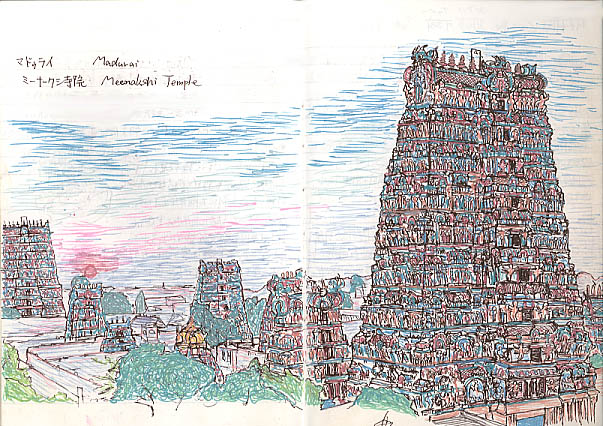 マドゥライ Madurai
ミーナークシ寺院 Meenakshi Temple